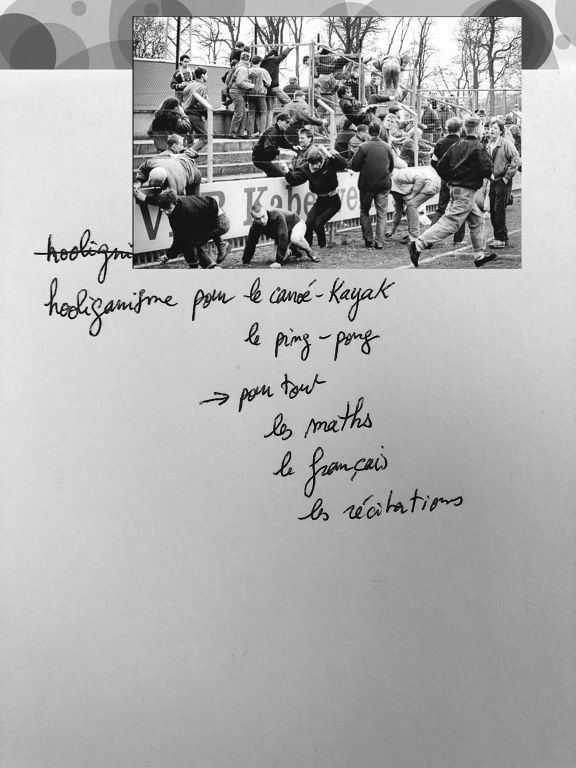 V R Kabe we
hooligni
hooliganisme pour le canoé-Kayak
le ping-pong
→ pour tout
les maths
le français
les récitations